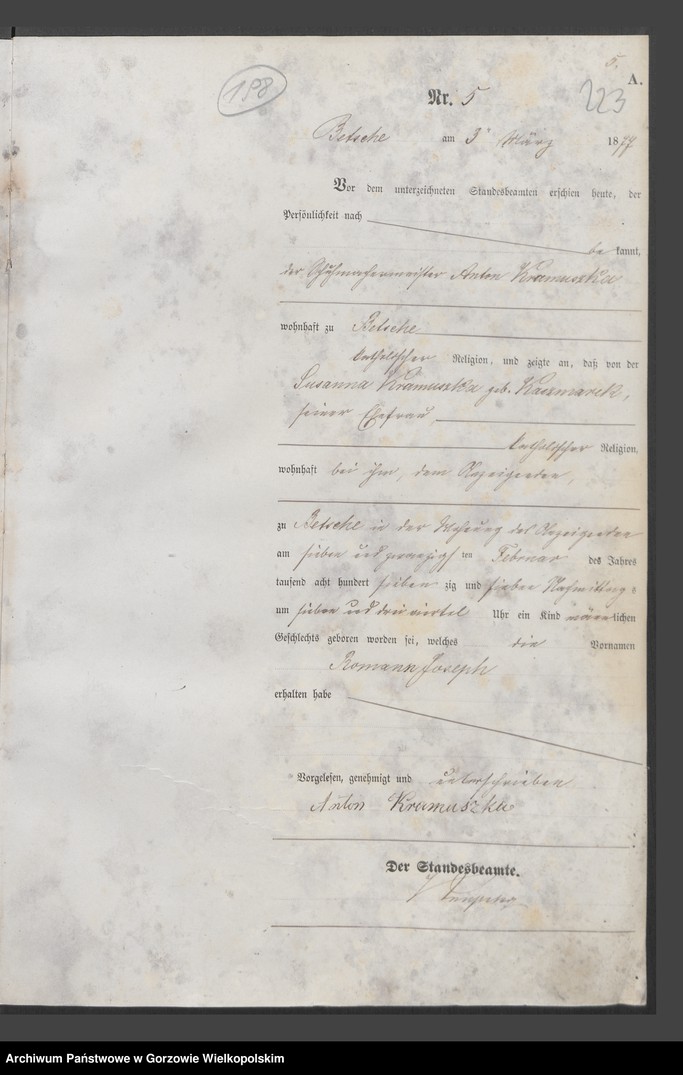 5.
A.
198
Nr. 5
223
Betsche am 3 März 1877
Vor dem unterzeichneten Standesbeamten erschien heute, der
Persönlichkeit nach
be kannt,
der Schuhmachermeister Anton Kramuszka
wohnhaft zu Betsche
katholischer Religion, und zeigte an, daß von der
Susanna Kramuszka geb. Kaczmarek,
seiner Ehefrau
katholischer Religion,
wohnhaft bei ihm, dem Anzeigenden,
zu Betsche in der Wohnung des Anzeigenden
am sieben und zwanzigsten Februar des Jahres
tausend acht hundert sieben zig und sieben Nachmittags
um sieben und drei viertel Uhr ein Kind männlichen
Geschlechts geboren worden sei, welches die Vornamen
Romann Joseph
erhalten habe
Vorgelesen, genehmigt und unterschrieben
Anton Kramuszka
Der Standesbeamte.
Archiwum Państwowe w Gorzowie Wielkopolskim